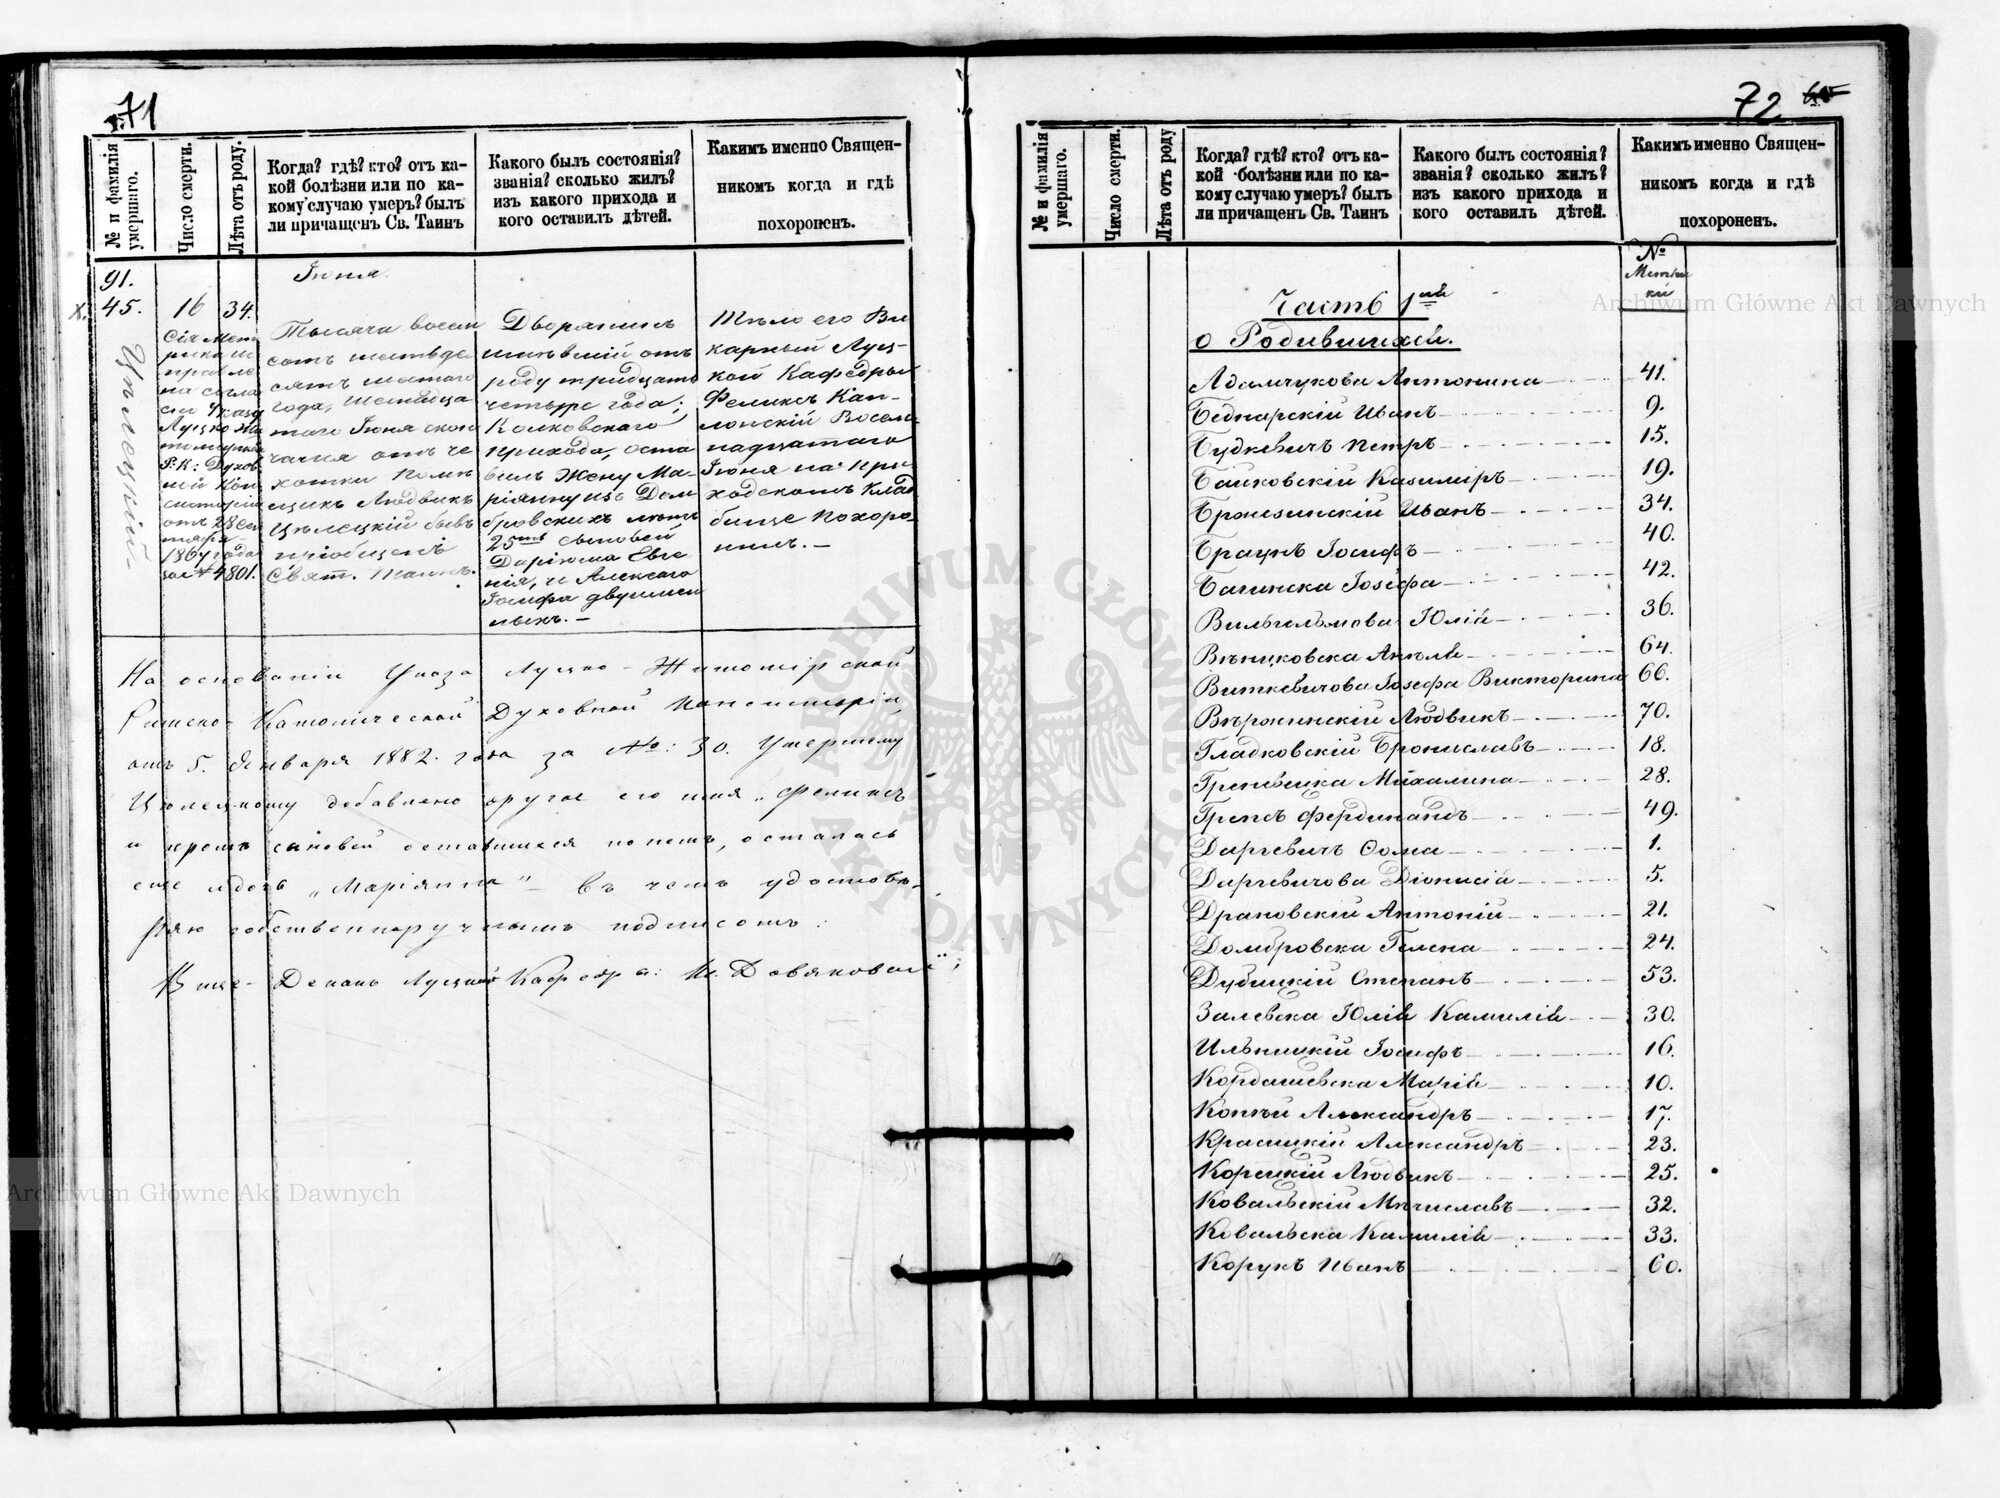 71
№ и фамилія умершаго.
Число смерти.
Лѣта отъ роду.
Когда? гдѣ? кто? отъ ка-
кой болѣзни или по ка-
кому случаю умеръ? былъ
ли причащенъ Св. Таинъ
Какого былъ состоянія?
званія? сколько жилъ?
изъ какого прихода и
кого оставилъ дѣтей.
Какимъ именно Священ-
никомъ когда и гдѣ
похороненъ.
91.
45.
х.
Цѣлецкій
16
34.
Сія Мет
рика ис
правле
на согла
сно Указу
Луцко Жи
томирской
Р. К: Духов
ной Кон
систоріи
отъ 28 Сен
тября
1867 года
за № 4801.
Іюня.
Тысяча восем
сотъ шестьде
сятъ шестаго
года, Шестнадца
таго Іюня скон
чался отъ че
хотки Помѣ
щикъ Людвикъ
Цѣлецкій бывъ
пріобщенъ
Свят. Таинъ.
Дворянинъ
имѣвшій отъ
роду тридцать
четыре года;
Колковскаго
прихода, оста
вилъ Жену Ма-
ріянну изъ Дом
бровскихъ лѣтъ
25ть сыновей
Даріюша Евге
нія, и Алексаго
Іосифа двуимен
ныхъ. —
Тѣло его Ви
карный Луц-
кой Кафедры
Феликсъ Кап-
лонскій Восем-
надцатаго
Іюня на При
ходскомъ Клад
бище похоро-
нилъ. —
На основаніи Указа Луцко-Житомірской
Римско-Католической Духовной Консисторіи
отъ 5. Января 1882. года за №: 30. Умершему
Цѣлецкому добавлено другое его имя „Феликсъ
и кромѣ сыновей оставшихся по немъ, осталась
еще и дочь „Маріянна" – въ чемъ удостовѣ-
ряю собственноручнымъ подписомъ:
Вице-Деканъ Луцкій Кафедр.
72
№ и фамилія умершаго.
Число смерти.
Лѣта отъ роду
Когда? гдѣ? кто? отъ ка-
кой болѣзни или по ка-
кому случаю умеръ? былъ
ли причащенъ Св. Таинъ
Какого былъ состоянія?
званія? сколько жилъ?
изъ какого прихода и
кого оставилъ дѣтей.
Какимъ именно Священ-
никомъ когда и гдѣ
похороненъ.
№
Метри
ки
Часть 1ая
о Родившихся.
Адамчукова Антонина 41.
Беднарскій Иванъ 9.
Будкевичъ Петръ 15.
Байковскій Казимиръ 19.
Бронзинскій Иванъ 34.
Браунъ Іосифъ 40.
Багинска Іозефа 42.
Вильгельмова Юлія 36.
Вѣнцковска Анѣля 64.
Виткевичова Іозефа Викторина 66.
Вѣржинскій Людвикъ 70.
Гладковскій Брониславъ 18.
Михалина 28.
Фердинандъ 49.
Даргевичъ Ѳома 1.
Даргевичова Діонисія 5.
Драновскій Антоній 21.
Домбровска Гелена 24.
Дубицкій Степанъ 53.
Залевска Юлія Камилія 30.
Ильницкій Іосифъ 16.
Кордашевска Марія 10.
Копѣй Александръ 17.
Красицкій Александръ 23.
Корецкій Людвикъ 25.
Ковальскій Мѣчиславъ 32.
Ковальска Камилія 33.
Корукъ Иванъ 60.
Archiwum Główne Akt Dawnych
Archiwum Główne Akt Dawnych
ARCHIWUM GŁÓWNE
AKT DAWNYCH